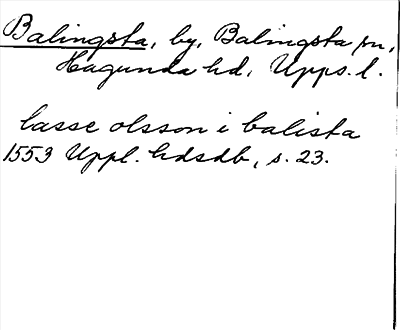 Balingsta, by, Balingsta sn,
Hagunda hd, Upps. l.
lasse olsson i balista
1553 Uppl. hdsdb, s. 23.